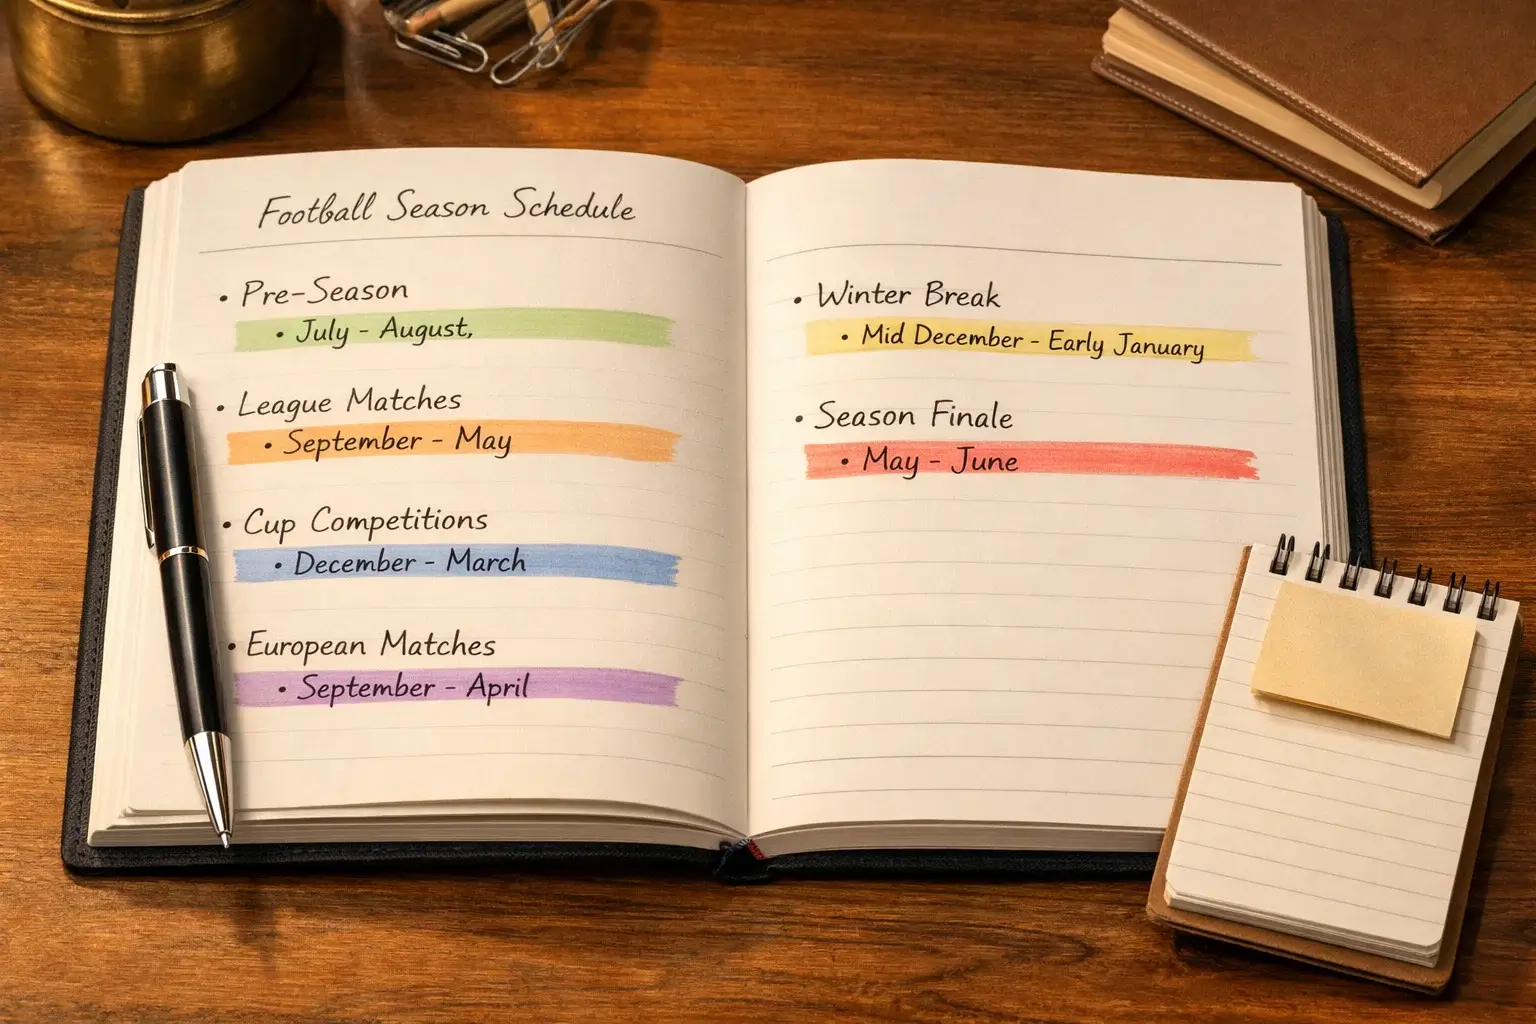 Football Season Schedule
• Pre-Season
• July - August,
• League Matches
• September - May
• Cup Competitions
• December - March
• European Matches
• September - April
• Winter Break
• Mid December - Early January
• Season Finale
• May - June